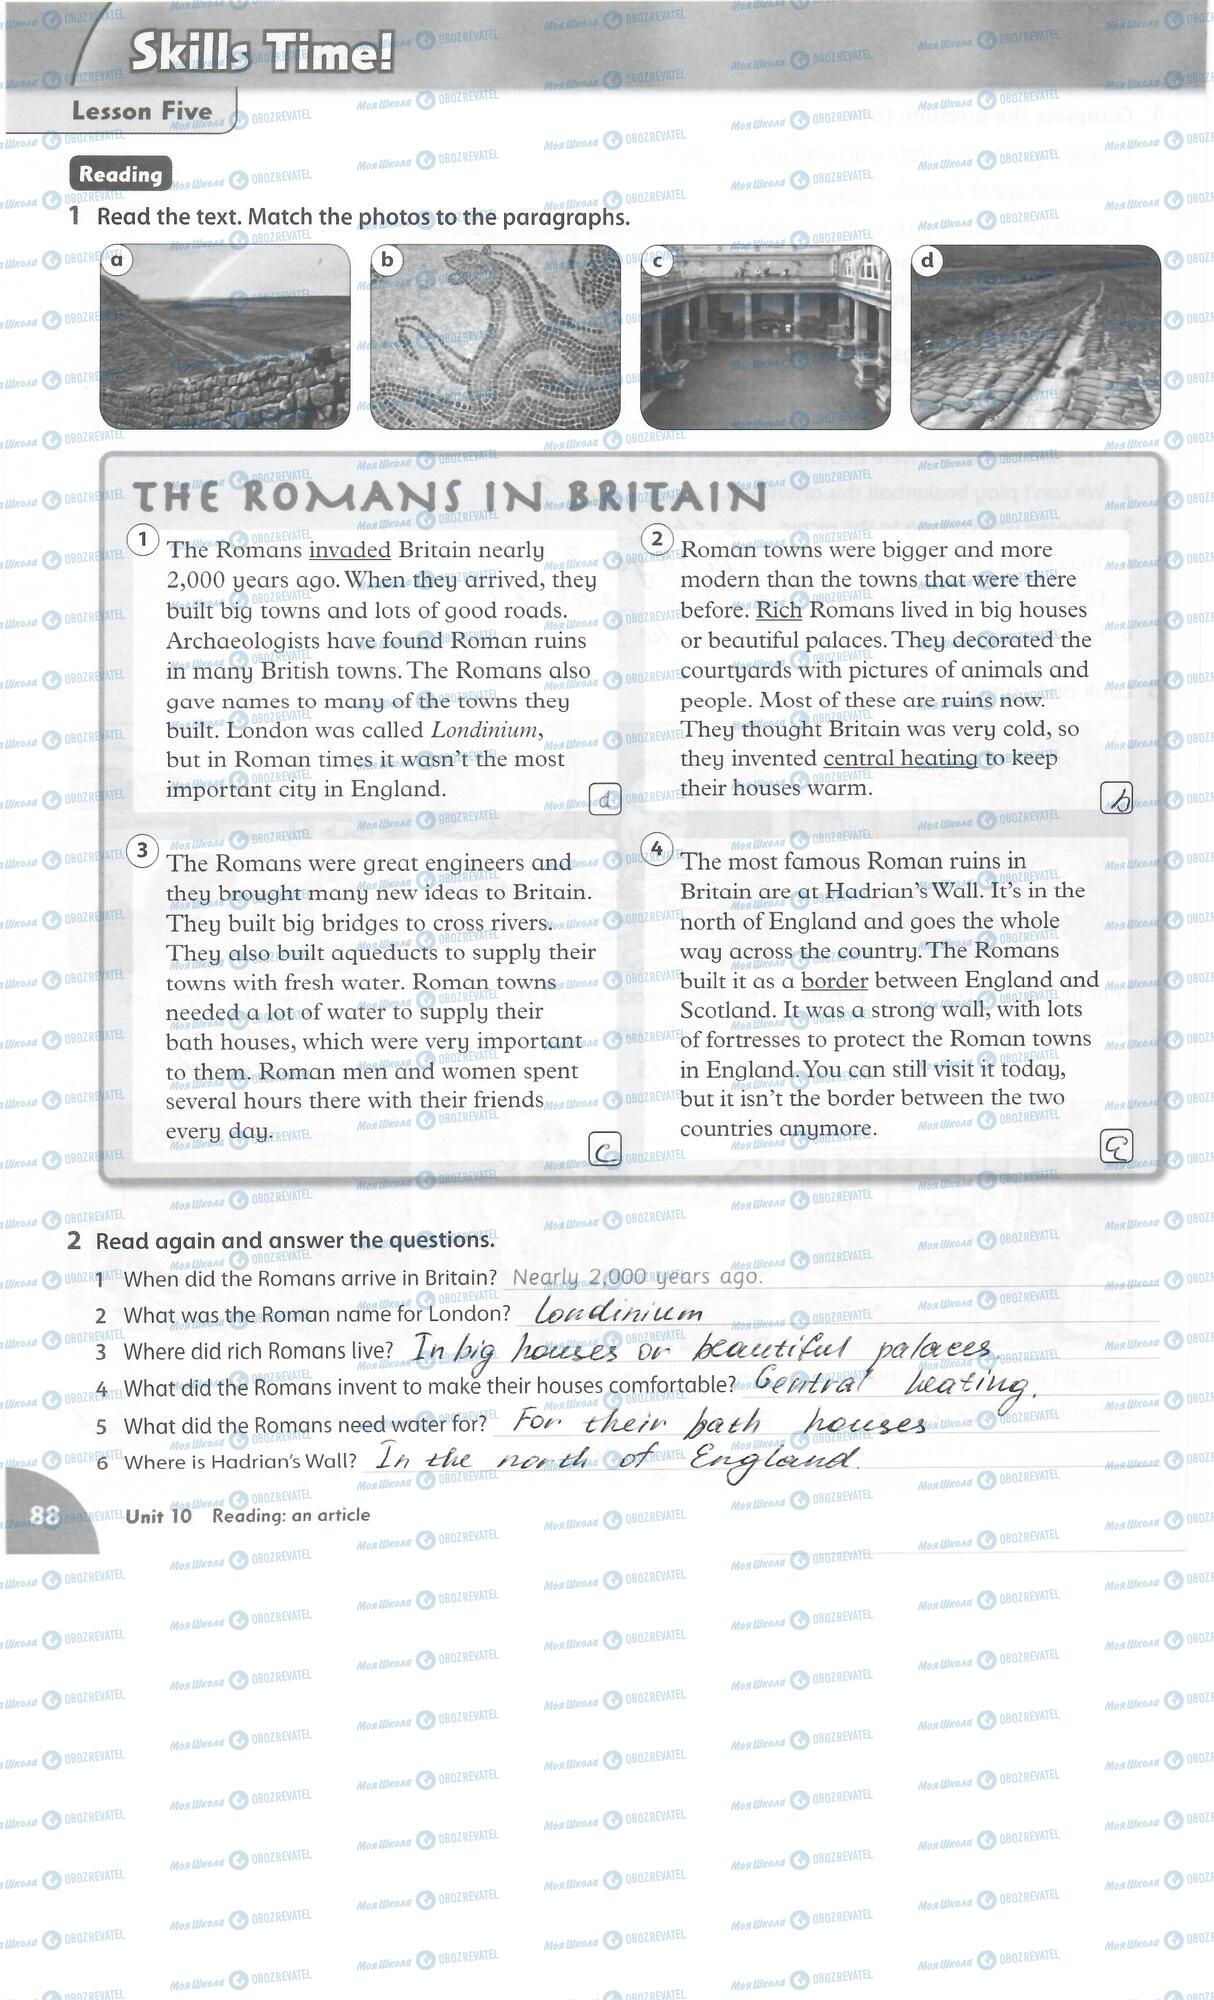 Skills Time!
Lesson Five
Reading
1 Read the text. Match the photos to the paragraphs.
a b c d
THE ROMANS IN BRITAIN
1 The Romans invaded Britain nearly
2,000 years ago. When they arrived, they
built big towns and lots of good roads.
Archaeologists have found Roman ruins
in many British towns. The Romans also
gave names to many of the towns they
built. London was called Londinium,
but in Roman times it wasn't the most
important city in England.
d
2 Roman towns were bigger and more
modern than the towns that were there
before. Rich Romans lived in big houses
or beautiful palaces. They decorated the
courtyards with pictures of animals and
people. Most of these are ruins now.
They thought Britain was very cold, so
they invented central heating to keep
their houses warm.
b
3 The Romans were great engineers and
they brought many new ideas to Britain.
They built big bridges to cross rivers.
They also built aqueducts to supply their
towns with fresh water. Roman towns
needed a lot of water to supply their
bath houses, which were very important
to them. Roman men and women spent
several hours there with their friends
every day.
c
4 The most famous Roman ruins in
Britain are at Hadrian's Wall. It's in the
north of England and goes the whole
way across the country. The Romans
built it as a border between England and
Scotland. It was a strong wall, with lots
of fortresses to protect the Roman towns
in England. You can still visit it today,
but it isn't the border between the two
countries anymore.
a
2 Read again and answer the questions.
1 When did the Romans arrive in Britain? Nearly 2,000 years ago.
2 What was the Roman name for London? Londinium
3 Where did rich Romans live? In big houses or beautiful palaces.
4 What did the Romans invent to make their houses comfortable? Central heating.
5 What did the Romans need water for? For their bath houses
6 Where is Hadrian's Wall? In the north of England.
88 Unit 10 Reading: an article
МояШкола OBOZREVATEL